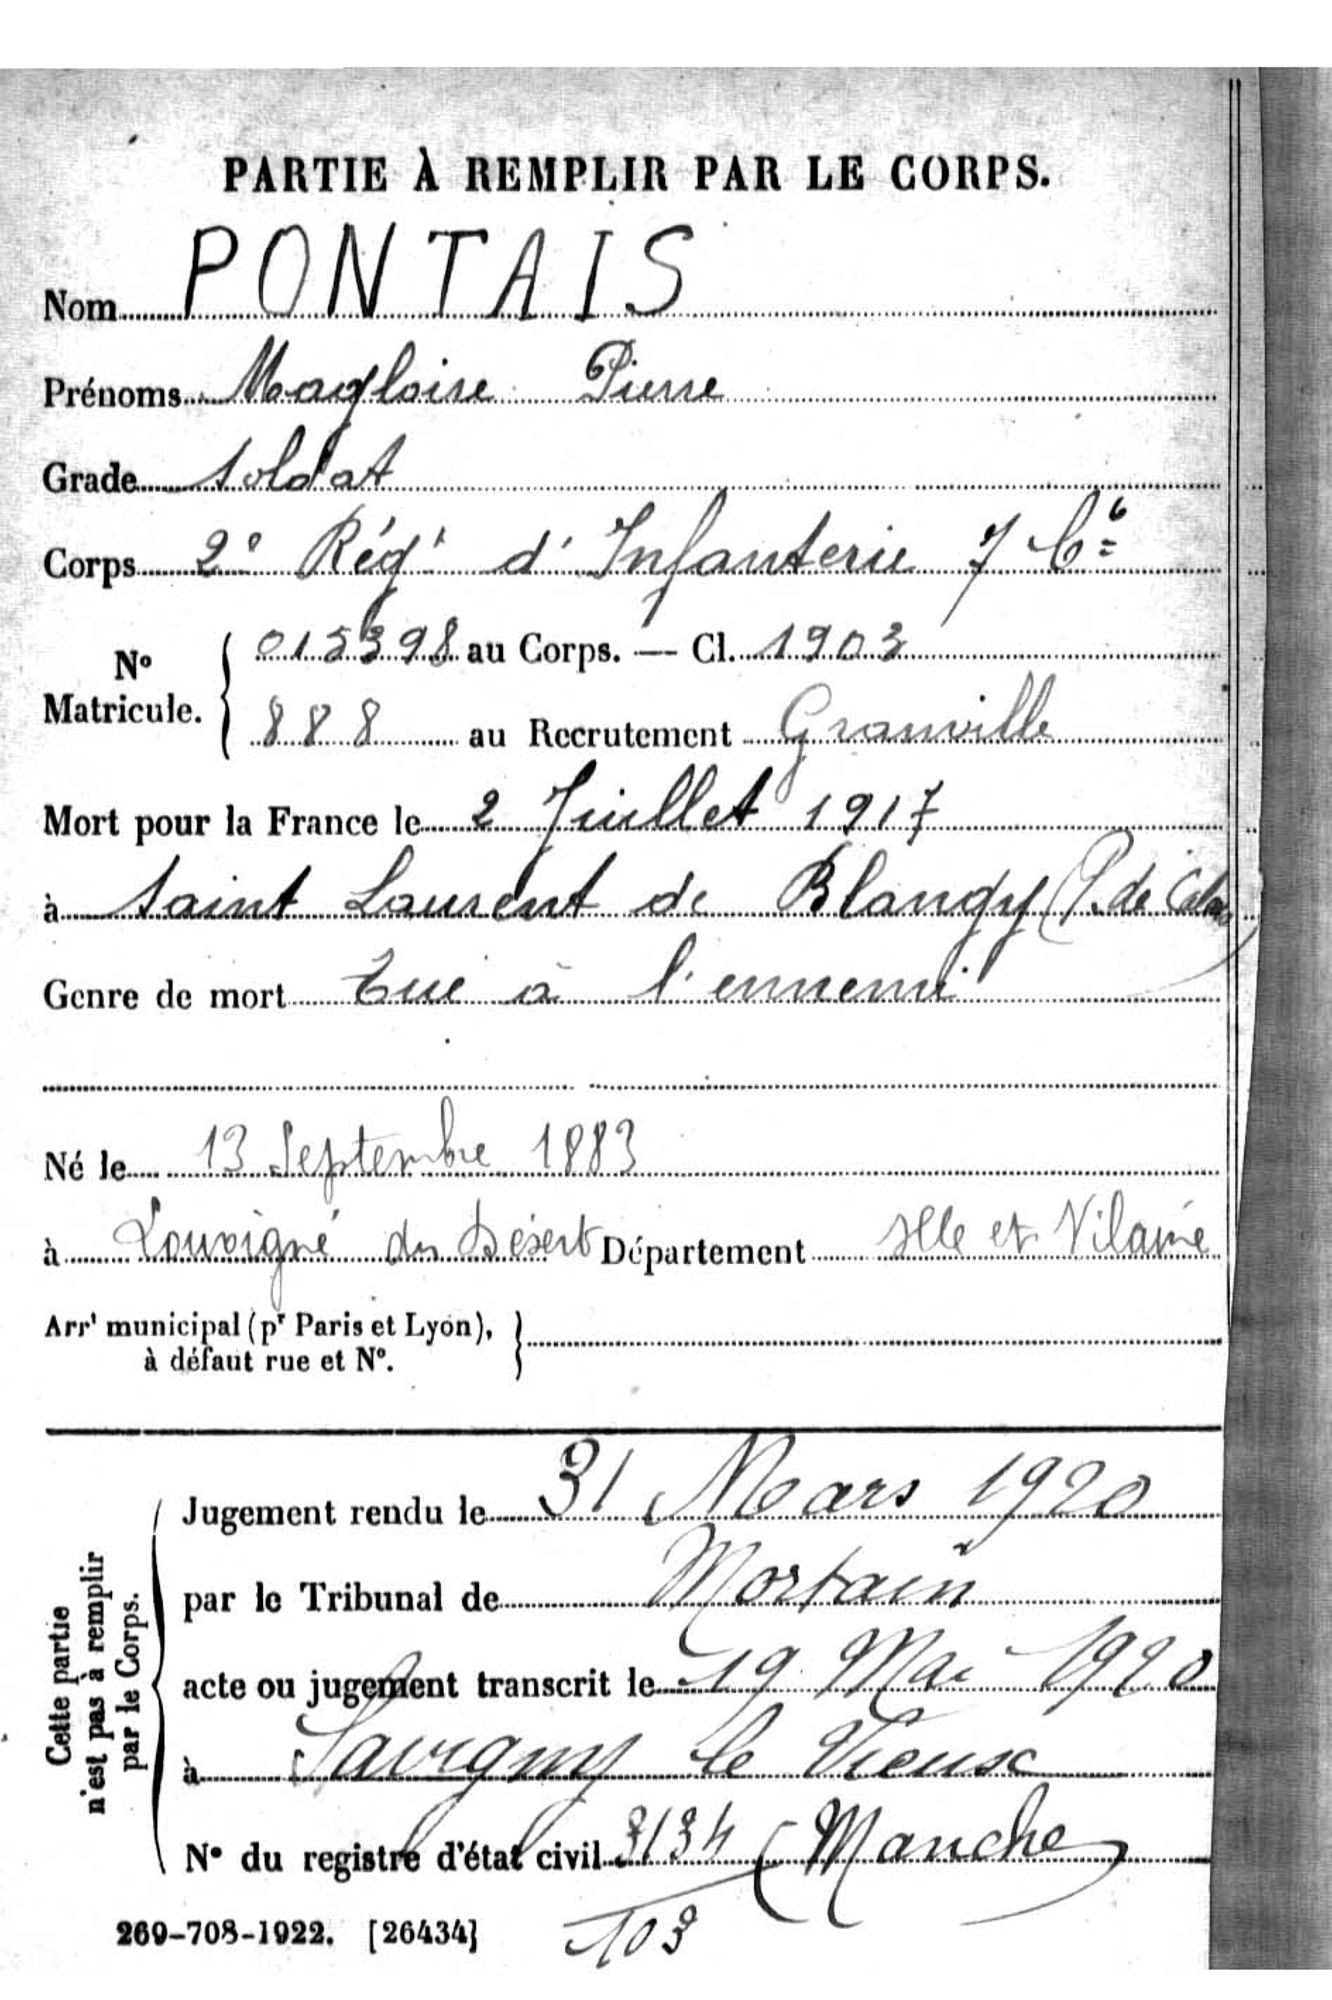 PARTIE À REMPLIR PAR LE CORPS.
Nom PONTAIS
Prénoms Magloire Pierre
Grade Soldat
Corps 2e Régt d'Infanterie 7 Cie
No Matricule. { 015398 au Corps. — Cl. 1903
888 au Recrutement Granville
Mort pour la France le 2 Juillet 1917
à Saint Laurent de Blangy (P. de Calais)
Genre de mort Tué à l'ennemi
Né le 13 Septembre 1883
à Louvigné du Désert Département Ille et Vilaine
Arrt municipal (pr Paris et Lyon), }
à défaut rue et No.
Cette partie
n'est pas à remplir
par le Corps.
Jugement rendu le 31 Mars 1920
par le Tribunal de Mortain
acte ou jugement transcrit le 19 Mai 1920
à Savigny le Vieux
No du registre d'état civil 3134 (Manche)
103
269-708-1922. [26434]